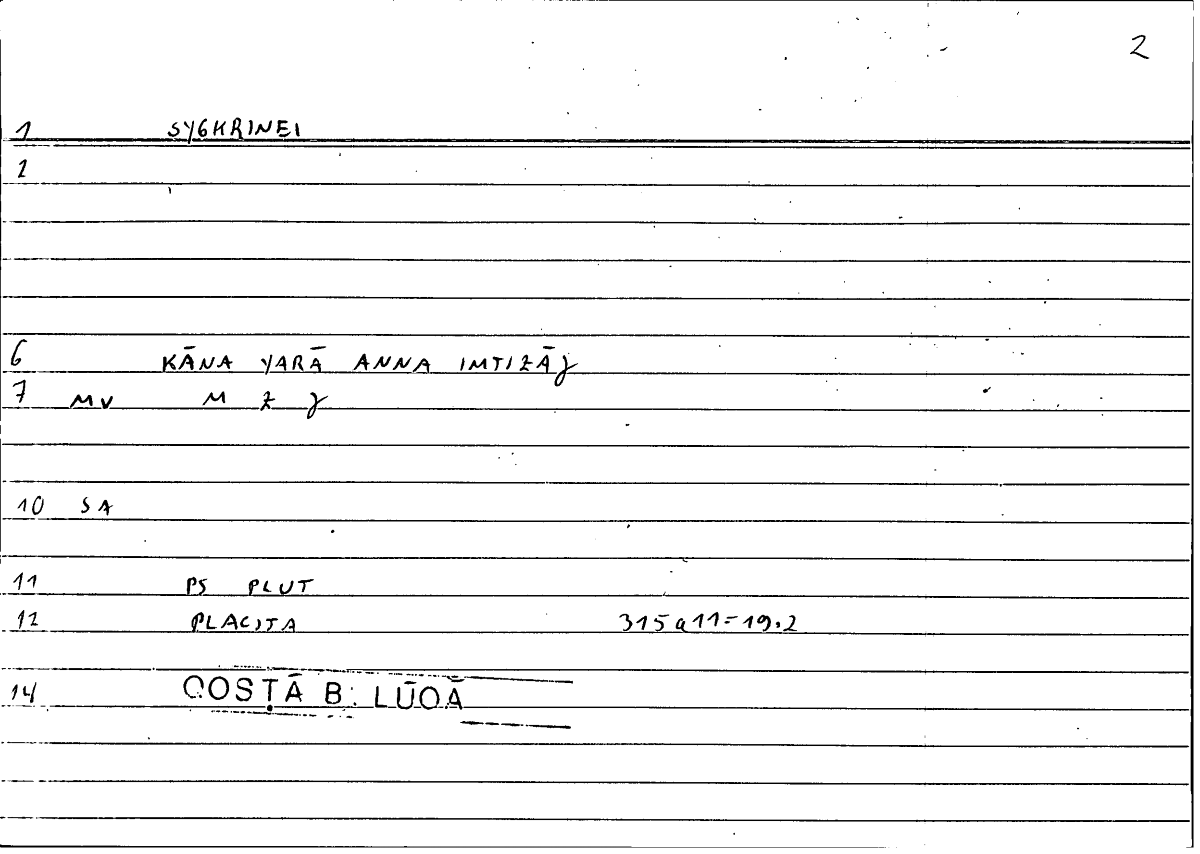 2
1 SYGKRINEI
2
6 KĀNA YARĀ ANNA IMTIZĀJ
7 MV M Z J
10 SA
11 PS PLUT
12 PLACITA 315a11=19.2
14 QOSṬĀ B. LŪQĀ